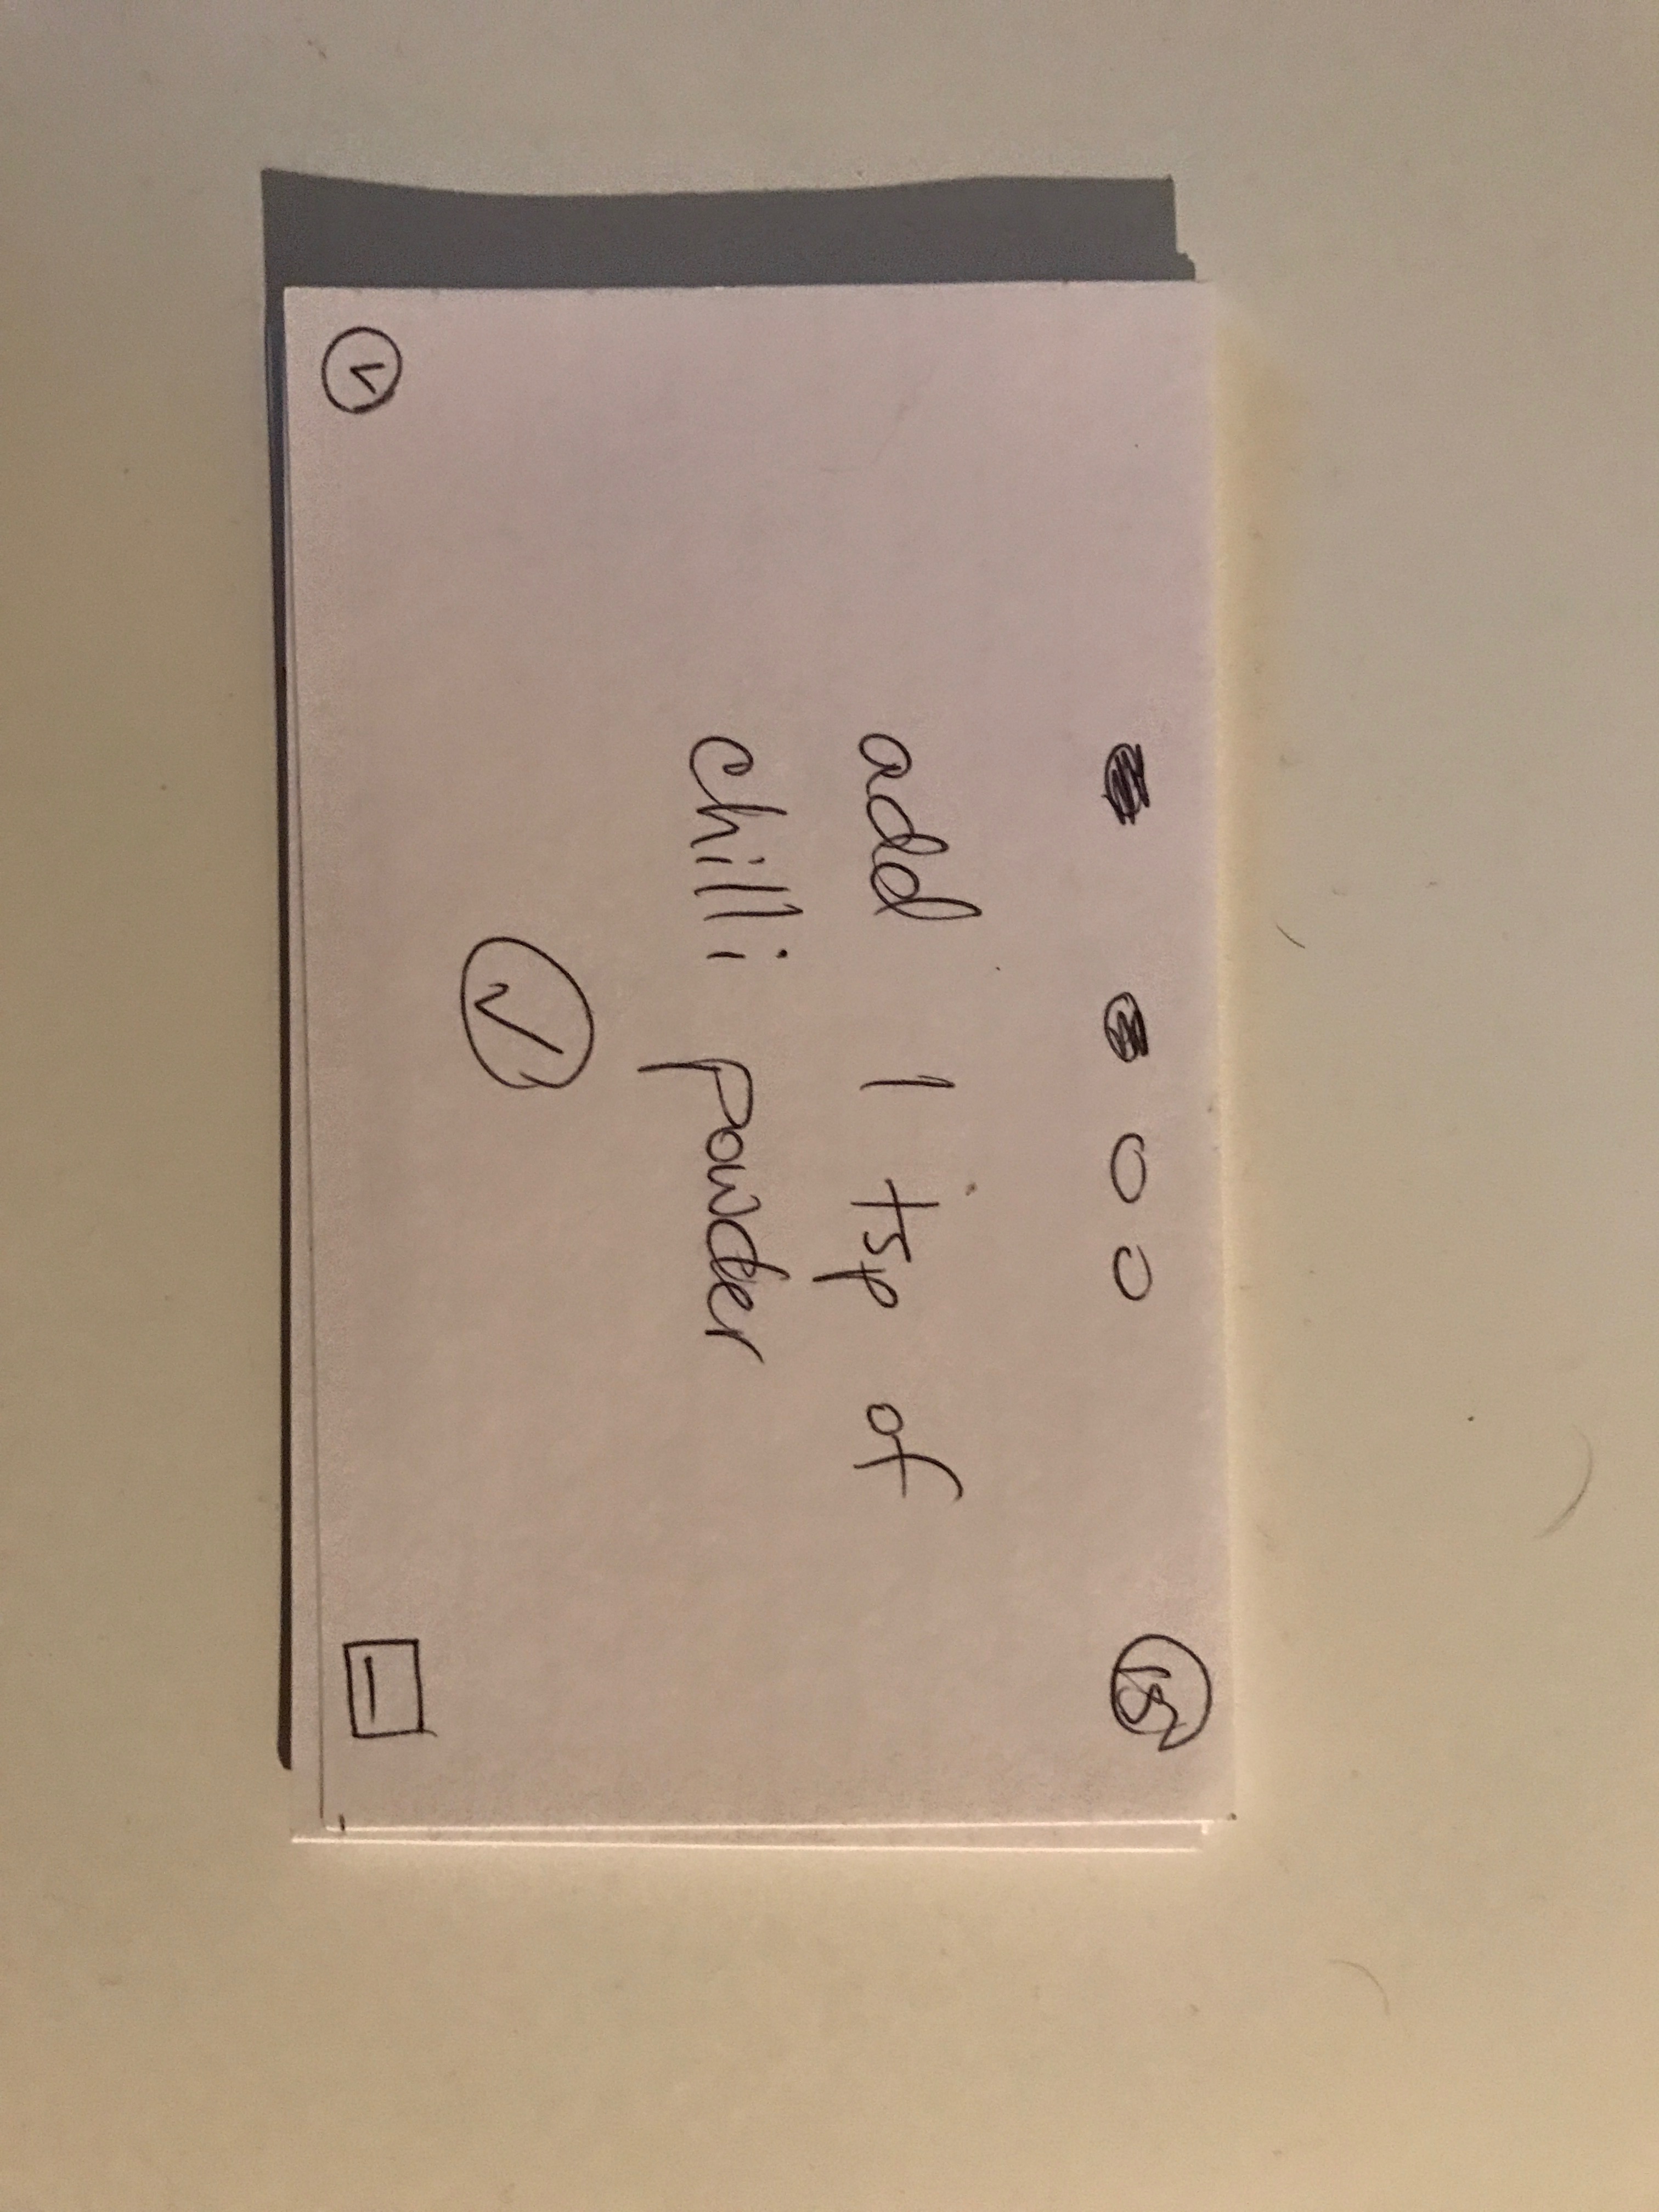 add 1 tsp of
chilli powder